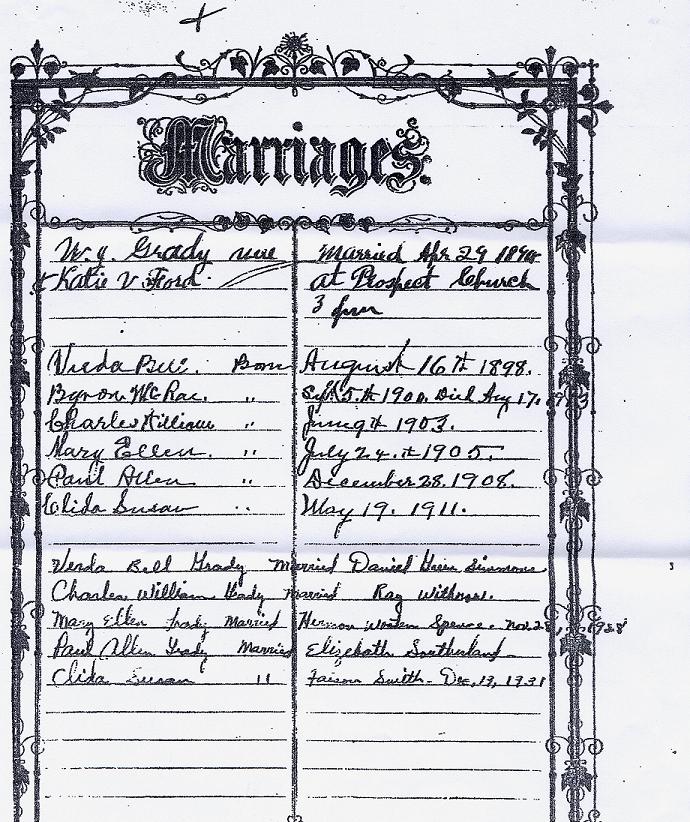 Marriages.
W. J. Grady were Married Apr 29 1894
& Katie V Ford at Prospect Church
3 pm
Verda Bell. Born August 16th 1898.
Byron McRae. " Sept 5.th 1900. Died Aug 17.
Charles William " June 9th 1903.
Mary Ellen. " July 24.th 1905.
Paul Allen " December 28. 1908.
Elida Susan " May 19. 1911.
Verda Bell Grady Married Daniel Simmons
Charles William Grady Married Ray
Mary Ellen Grady Married Herman Spence - Nov. 28, 1928
Paul Allen Grady Married Elizabeth Southerland
Elida Susan " Faison Smith - Dec, 13, 1931